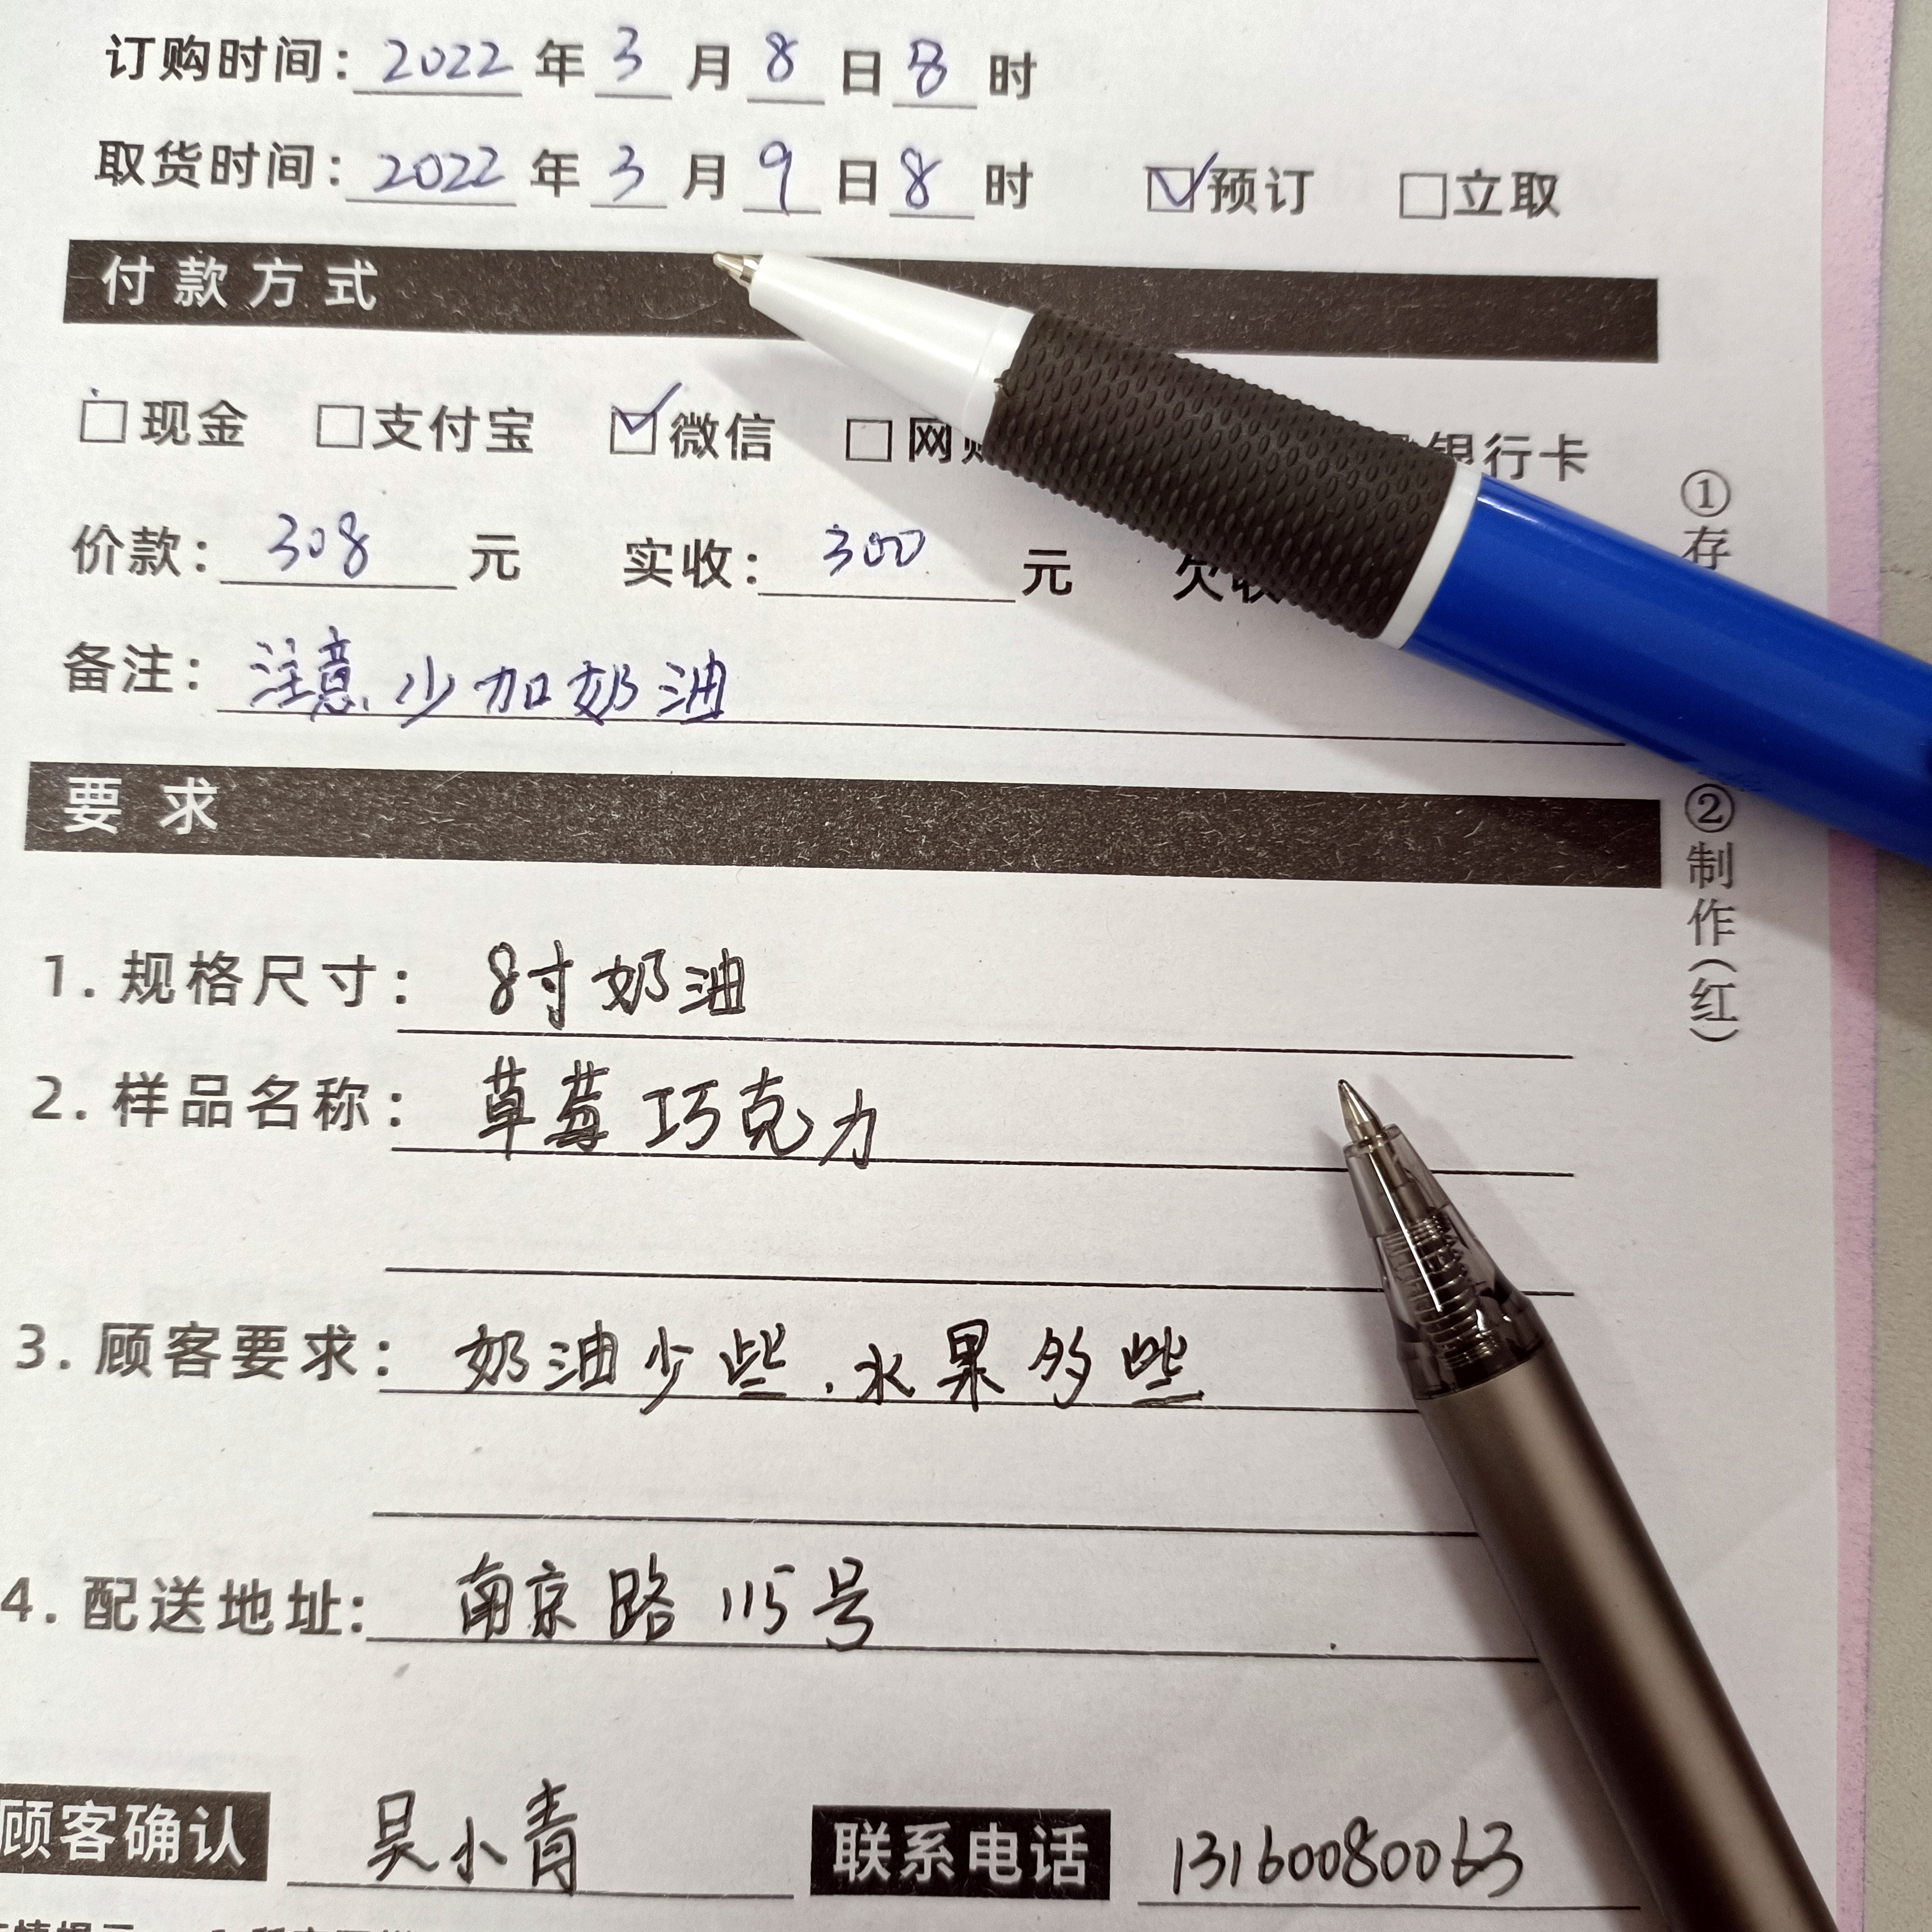 订购时间：2022年3月8日8时
取货时间：2022年3月9日8时 ☑预订 □立取
付款方式
□现金 □支付宝 ☑微信 □网 银行卡
价款：308元 实收：300元 欠收
备注：注意少加奶油
要求
1.规格尺寸：8寸奶油
2.样品名称：草莓巧克力
3.顾客要求：奶油少些.水果多些
4.配送地址：南京路115号
顾客确认 吴小青 联系电话 13160080063
①存
②制作(红)